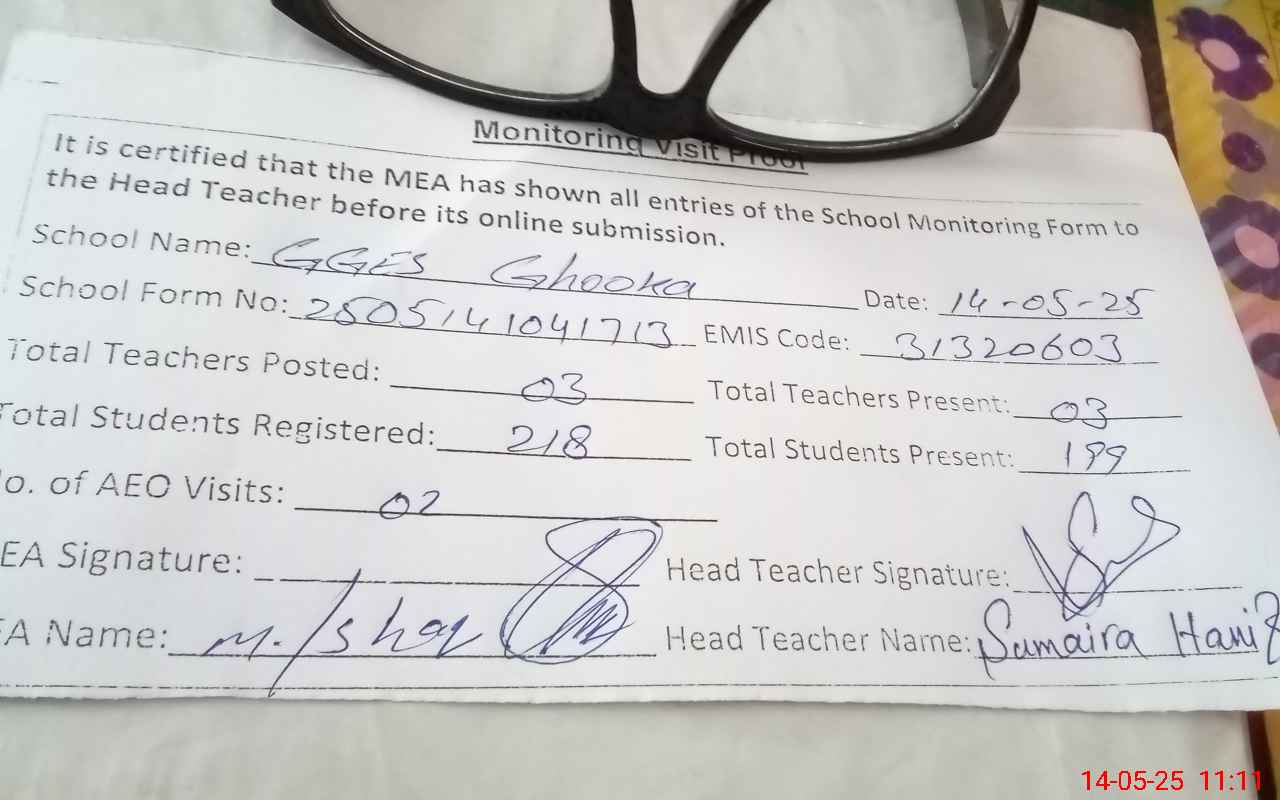 Monitoring Visit Proof
It is certified that the MEA has shown all entries of the School Monitoring Form to
the Head Teacher before its online submission.
School Name: GGES Ghooka Date: 14-05-25
School Form No: 2505141041713 EMIS Code: 31320603
Total Teachers Posted: 03 Total Teachers Present: 03
Total Students Registered: 218 Total Students Present: 199
o. of AEO Visits: 02
EA Signature: Head Teacher Signature:
A Name: M. Ishaq Head Teacher Name: Sumaira Hanif
14-05-25 11:11